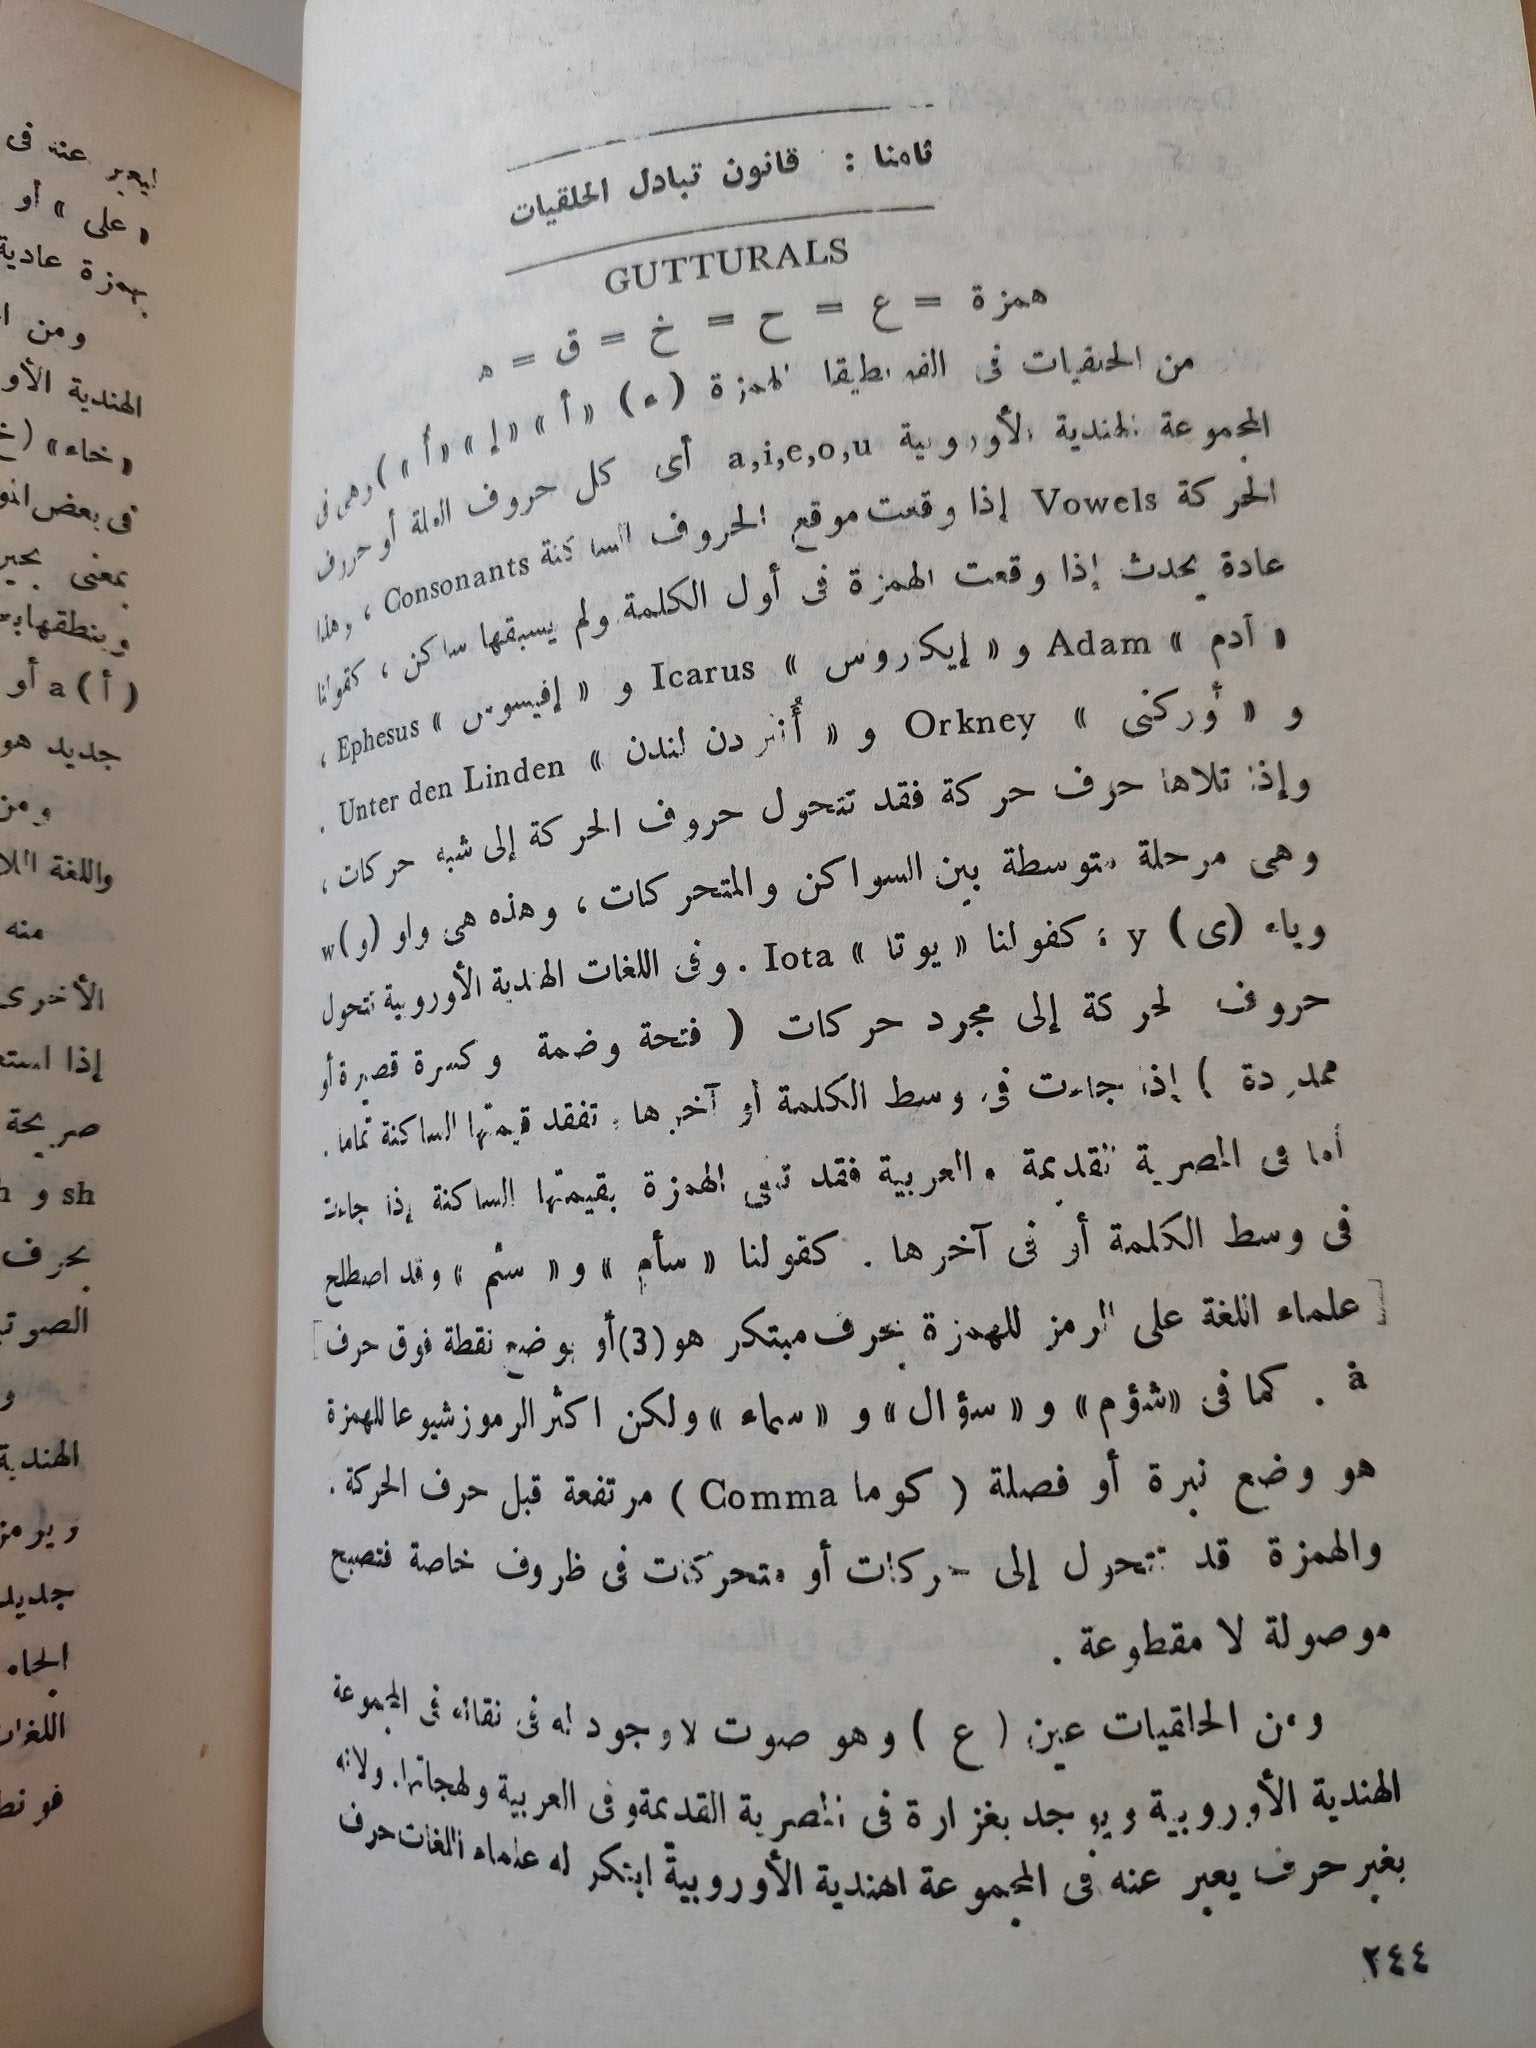 ثامنا : قانون تبادل الحلقيات
GUTTURALS
همزة = ع = ح = خ = ق = ه
من الحلقيات فى الفونطيقا الهمزة (ء) «أ» «إ» «أُ») وهى فى
المجموعة الهندية الأوروبية a,i,e,o,u أى كل حروف العلة أو حروف
الحركة Vowels إذا وقعت موقع الحروف الساكنة Consonants ، وهذا
عادة يحدث إذا وقعت الهمزة فى أول الكلمة ولم يسبقها ساكن ، كقولنا
« آدم » Adam و « إيكاروس » Icarus و « إفيسوس » Ephesus ،
و « أوركنى » Orkney و « أُنتر دن لندن » Unter den Linden .
وإذا تلاها حرف حركة فقد تتحول حروف الحركة إلى شبه حركات ،
وهى مرحلة متوسطة بين السواكن والمتحركات ، وهذه هى واو (و) w
وياء (ى) y : كقولنا « يوتا » Iota . وفى اللغات الهندية الأوروبية تتحول
حروف الحركة إلى مجرد حركات ( فتحة وضمة وكسرة قصيرة أو
ممدودة ) إذا جاءت فى وسط الكلمة أو آخرها . تفقد قيمتها الساكنة تماما .
أما فى المصرية القديمة والعربية فقد تبقى الهمزة بقيمتها الساكنة إذا جاءت
فى وسط الكلمة أو فى آخرها . كقولنا « سأم » و « سئم » وقد اصطلح
علماء اللغة على الرمز للهمزة بحرف مبتكر هو (3) أو بوضع نقطة فوق حرف
ȧ . كما فى «شؤم» و «سؤال» و «سماء» ولكن اكثر الرموز شيوعا للهمزة
هو وضع نبرة أو فصلة ( كوما Comma ) مرتفعة قبل حرف الحركة .
والهمزة قد تتحول إلى حركات أو متحركات فى ظروف خاصة فتصبح
موصولة لا مقطوعة .
ومن الحلقيات عين ( ع ) وهو صوت لا وجود له فى نقائه فى المجموعة
الهندية الأوروبية ويوجد بغزارة فى المصرية القديمة وفى العربية ولهجاتها. ولأنه
بغير حرف يعبر عنه فى المجموعة الهندية الأوروبية ابتكر له علماء اللغات حرف
٢٤٤